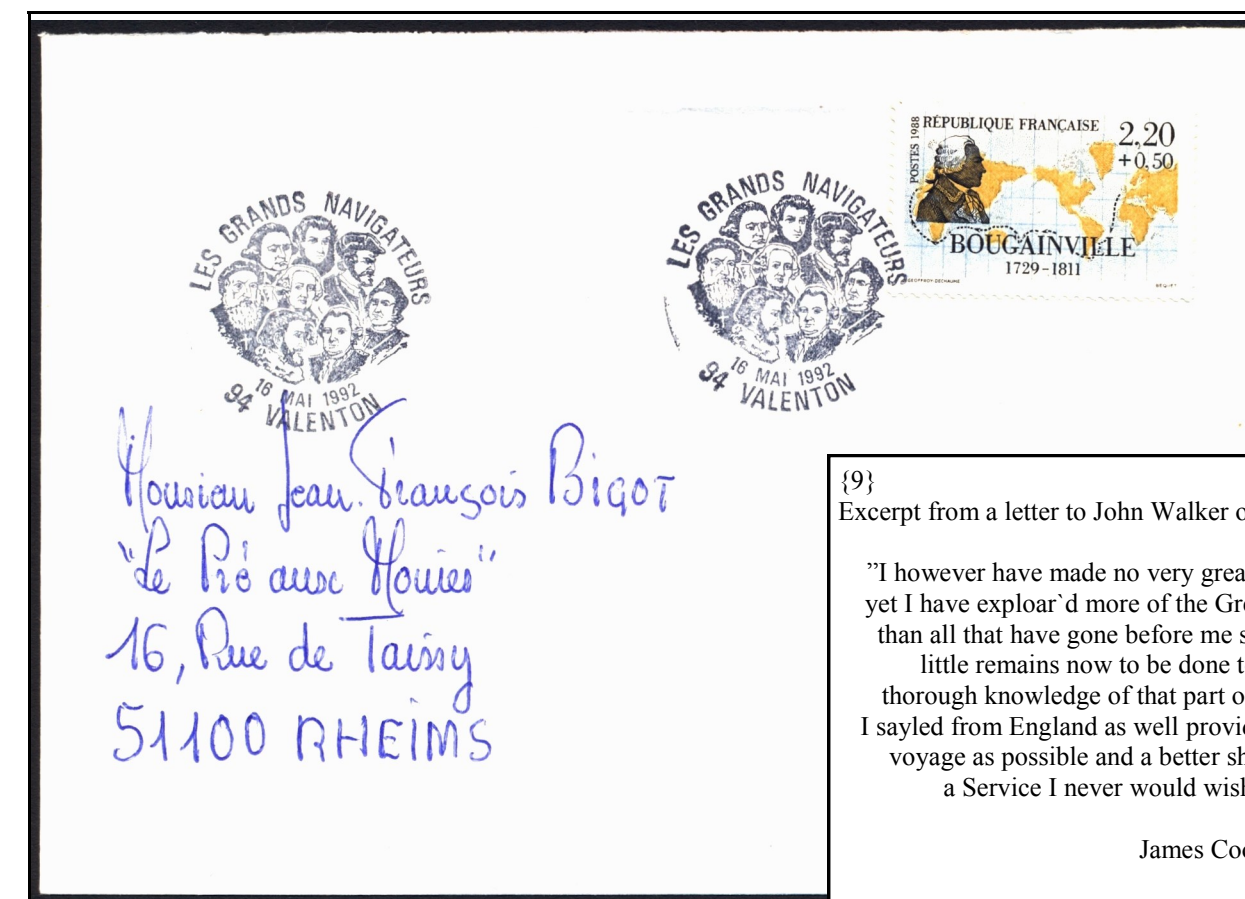 LES GRANDS NAVIGATEURS
16 MAI 1992
94 VALENTON
LES GRANDS NAVIGATEURS
16 MAI 1992
94 VALENTON
POSTES 1988
RÉPUBLIQUE FRANÇAISE
2,20
+0,50
BOUGAINVILLE
1729-1811
GEOFFROY-DECHAUME
BEQUET
Monsieur Jean-François BIGOT
"Le Pré aux Moines"
16, Rue de Taissy
51100 RHEIMS
{9}
Excerpt from a letter to John Walker o
”I however have made no very grea
yet I have exploar`d more of the Gr
than all that have gone before me s
little remains now to be done t
thorough knowledge of that part o
I sayled from England as well provi
voyage as possible and a better sh
a Service I never would wish
James Coo